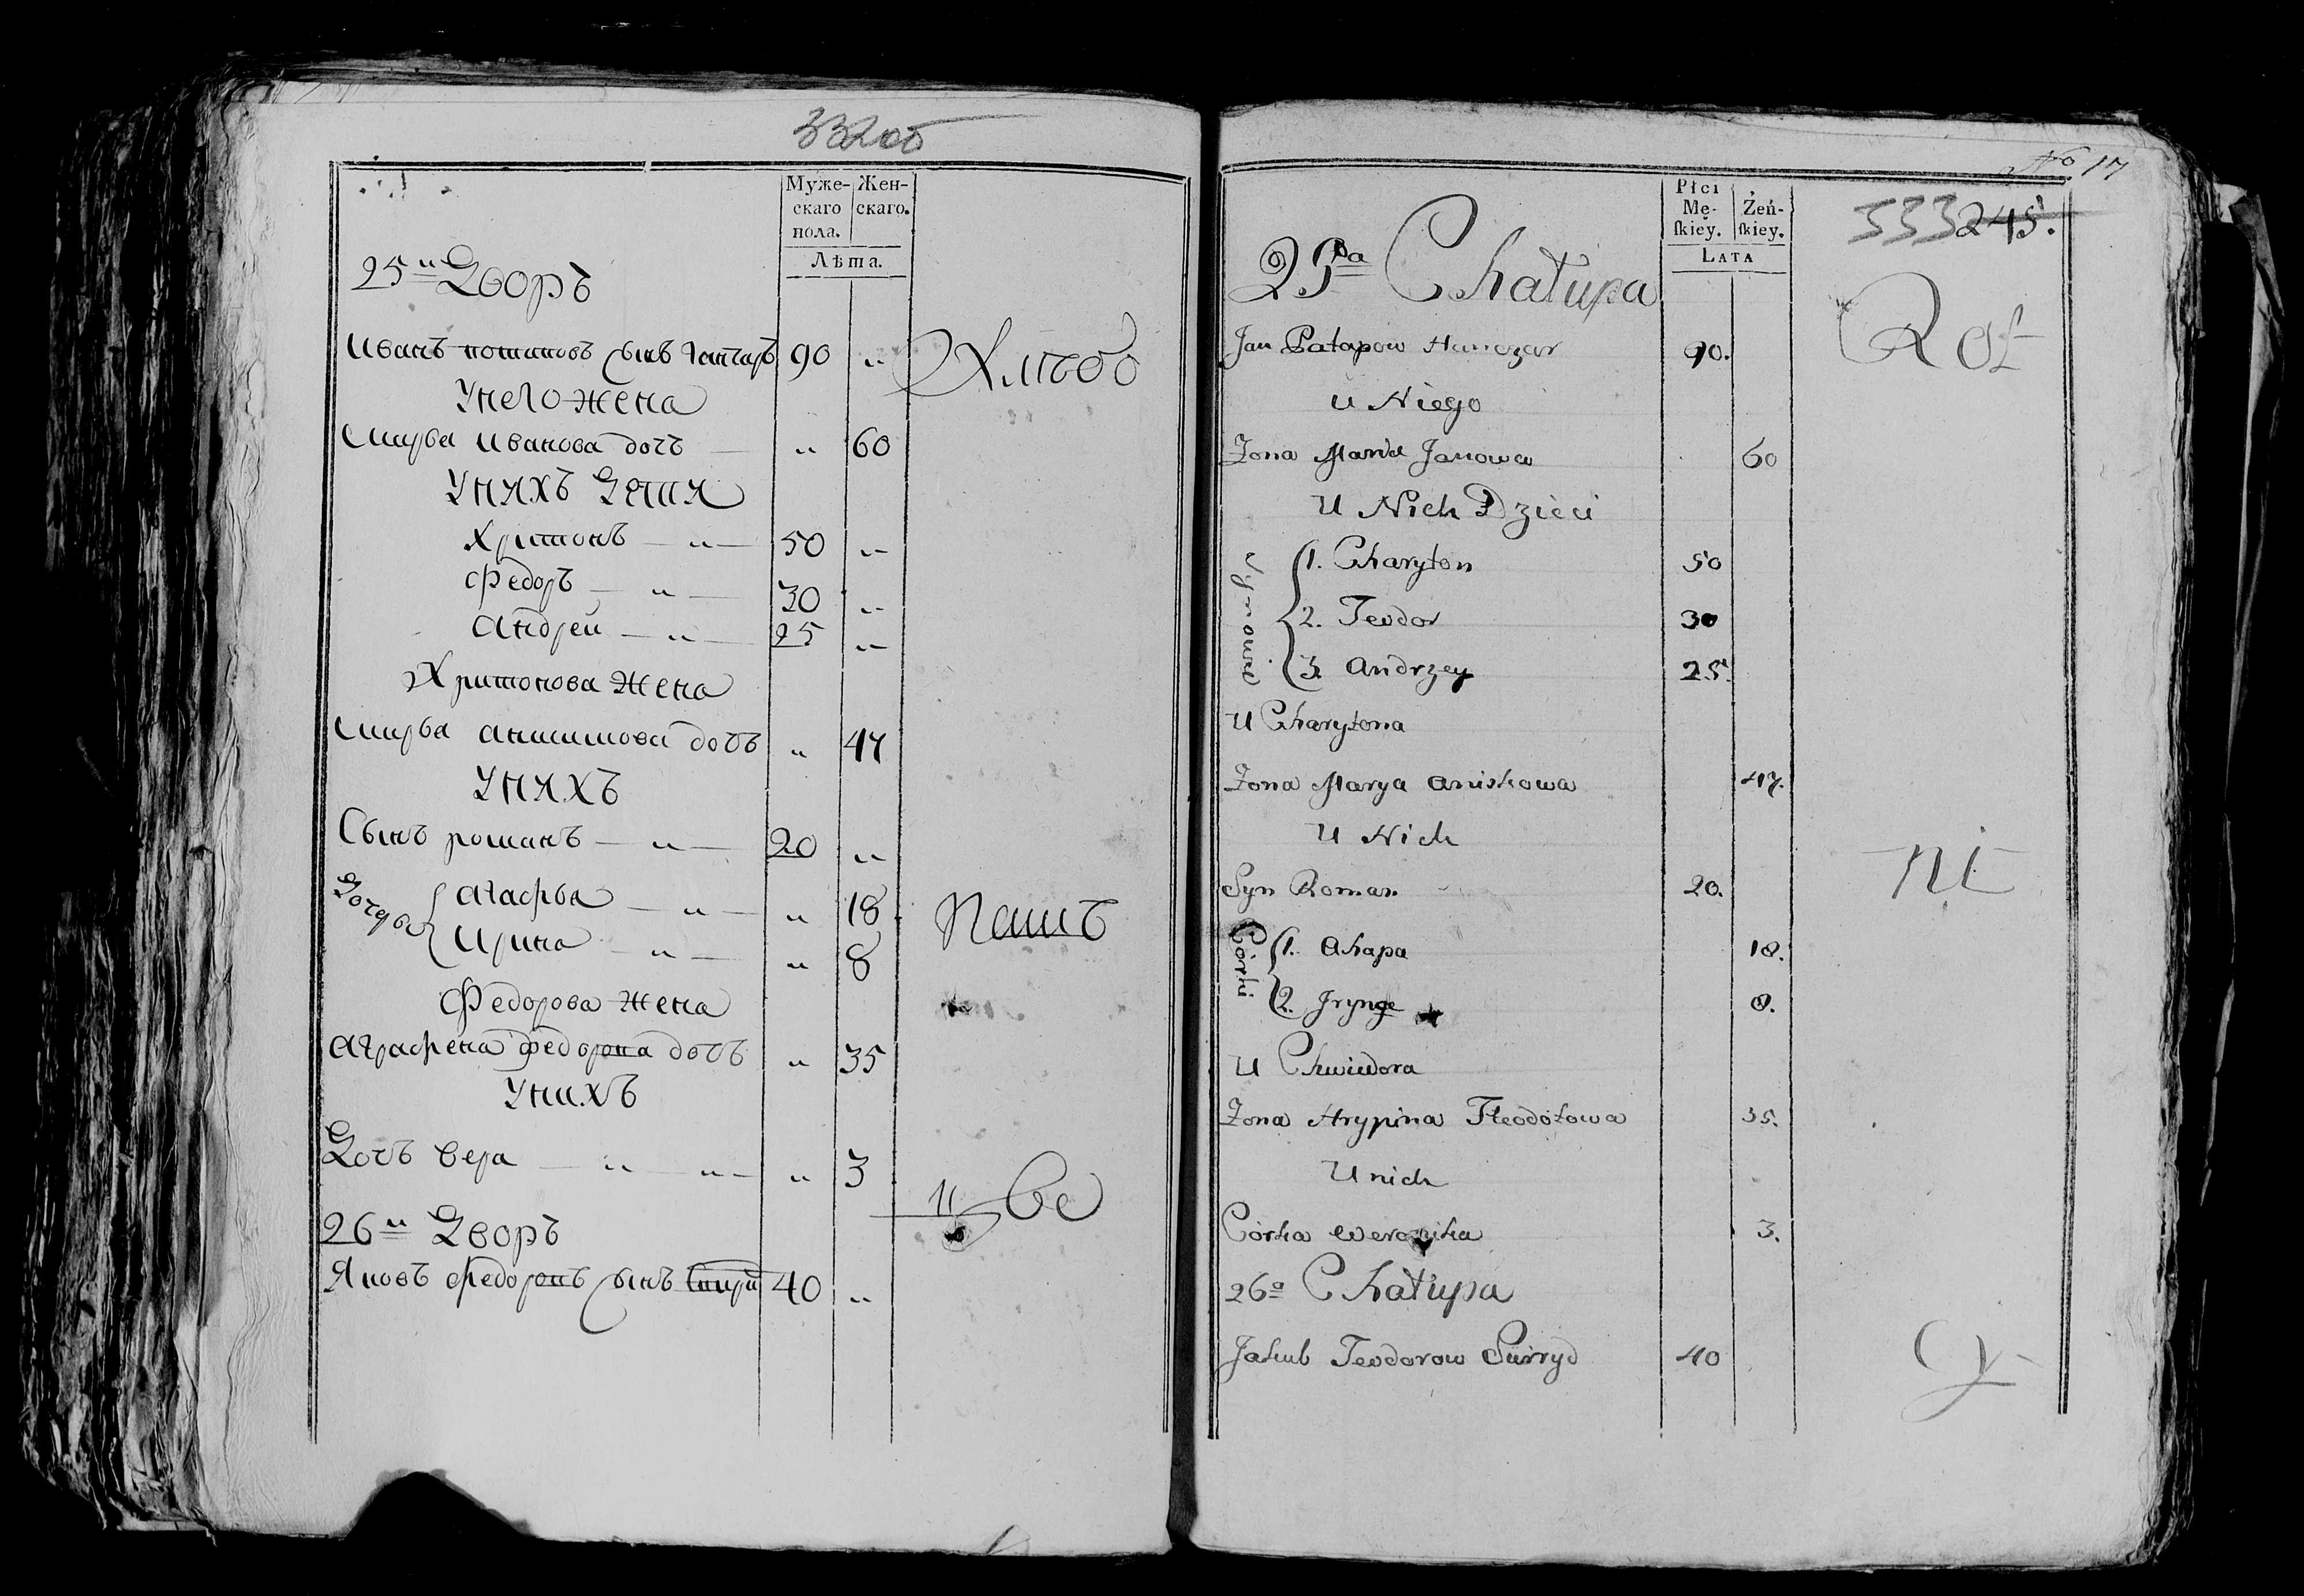 332об
Муже- Жен-
скаго скаго.
пола.
Лѣта.
25й Дворъ
Иванъ потаповъ сынъ ганчаръ 90 "
Хлѣбо
У него жена
Марья иванова дочь — " 60
У нихъ дети
Харитонъ — " — 50 "
Федоръ — " — 30 "
Андрей — " — 25 "
Харитонова жена
Марья анисимова дочь " 47
У нихъ
Сынъ романъ — " — 20 "
Дочери
агафья — " — " 18
Ирина — " — " 8
пашъ
Федорова жена
аграфена федорова дочь " 35
У нихъ
Дочь вера — " — " — " 3
11
це
26й Дворъ
Яковъ федоровъ сынъ 40 "
№ 17
Płci
Mę- Żeń-
skiey. skiey.
LATA
333 245.
25ta Chałupa
Rol
Jan Patapow Hanczar 90.
u Niego
Zona Marya Janowa 60
U Nich Dzieci
Synowie
1. Charyton 50
2. Teodor 30
3. Andrzey 25.
U Charytona
Zona Marya Aniskowa 47.
U Nich
ni
Syn Roman 20.
Córki
1. Ahapa 18.
2. Jryna 8.
U Chwiedora
Zona Hrypina Fteodotowa 35.
U nich
Córka Weronika 3.
26a Chałupa
Jakub Teodorow 40
cy